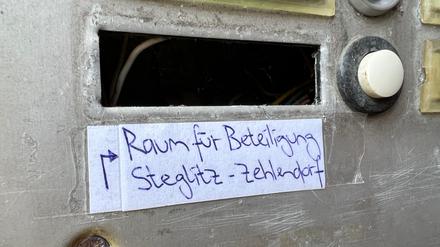 Raum für Beteiligung
Steglitz - Zehlendorf